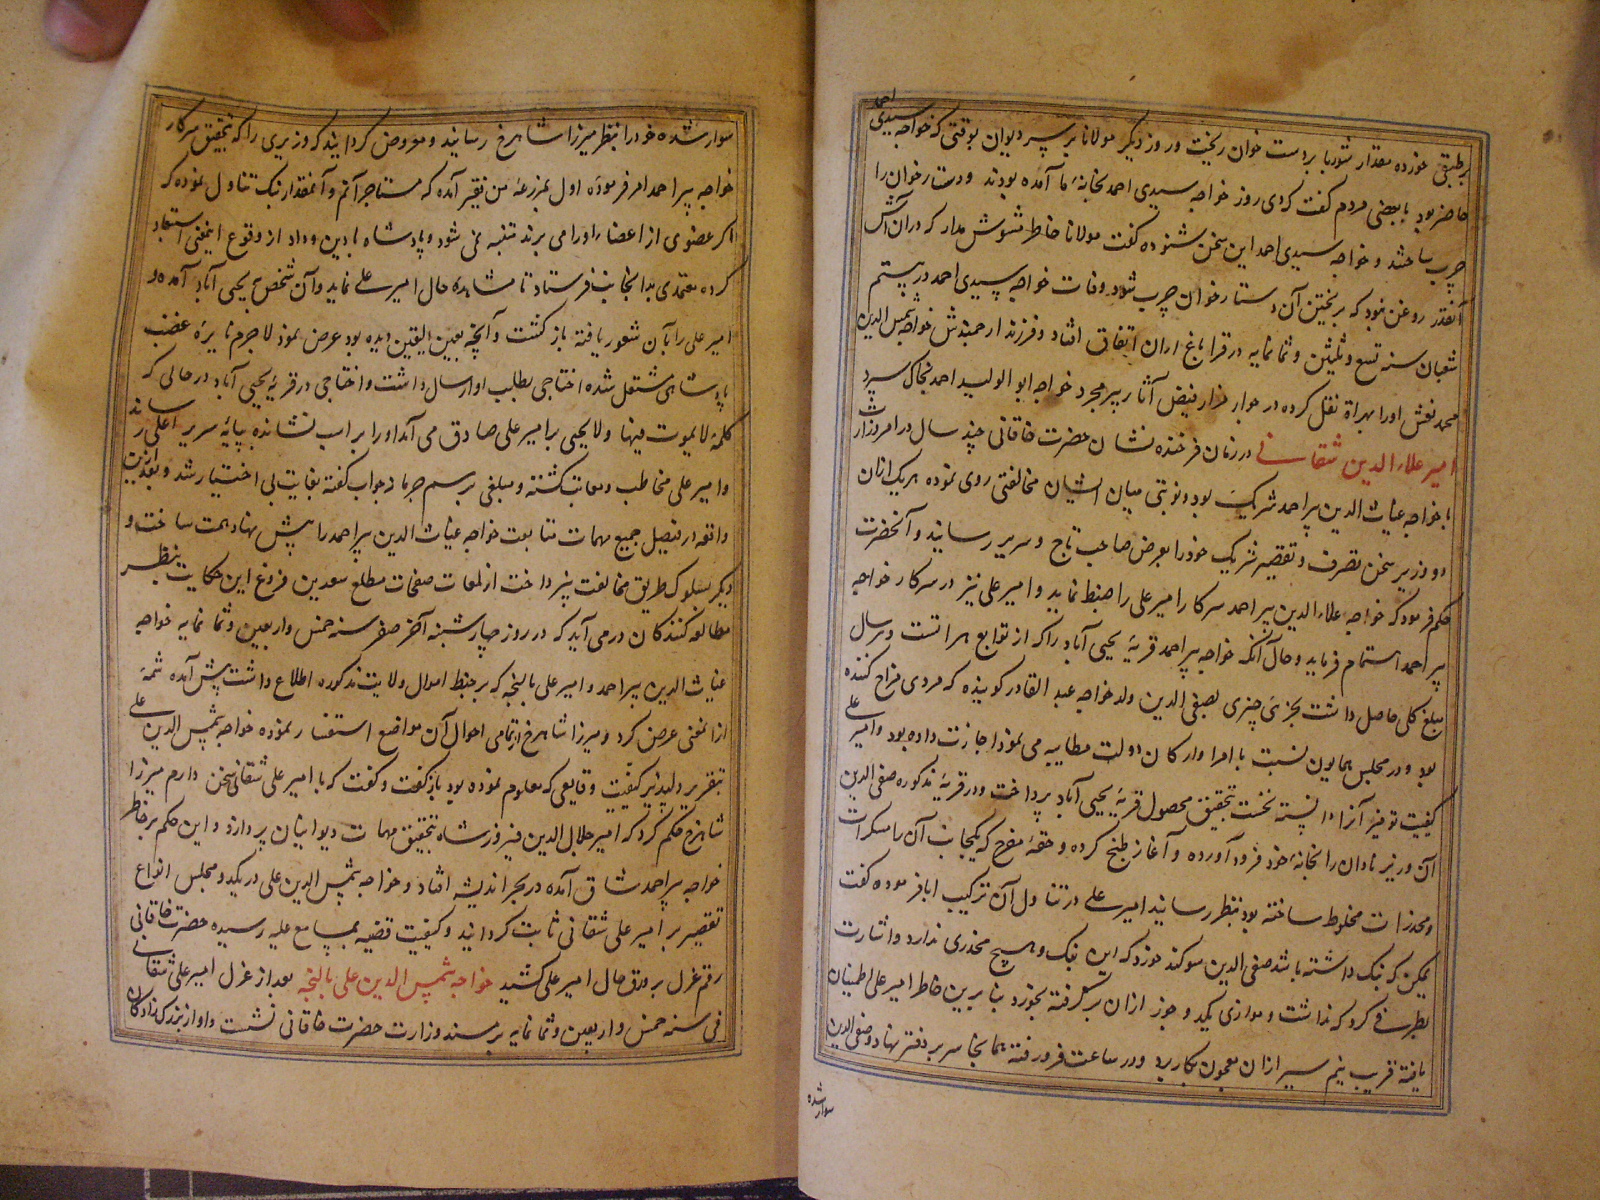 احمد
بر طبقی خورده مقدار شوربا بر دست خوان ریخت و روز دیگر مولانا بر سر دیوان بوقتی که خواجه سیدی
حاضر بود با بعضی مردم گفت که دی روز خواجه سیدی احمد بخانهٔ ما آمده بودند و دستارخوان را
چرب ساختند و خواجه سیدی احمد این سخن شنوده گفت مولانا خاطر مشوش مدار که در آن آش
آنقدر روغن نبود که بریختن آن دستارخوان چرب شود وفات خواجه سیدی احمد در بیستم
شعبان سنه تسع و ثلثین و ثمانمایه در قراباغ اران اتفاق افتاد و فرزند ارجمندش خواجه شمس الدین
محمد نعش او را بهراة نقل کرده در جوار مزار فیض آثار پیر مجرد خواجه ابو الولید احمد بخاک سپرد
امیر علاء الدین شقانی در زمان فرخنده نشان حضرت خاقانی چند سال در امر وزارت
با خواجه غیاث الدین پیر احمد شریک بود و نوبتی میان ایشان مخالفتی روی نموده هر یک از آن
دو وزیر سخن تصرف و تقصیر شریک خود را بعرض صاحب تاج و سریر رسانید و آنحضرت
حکم فرمود که خواجه علاء الدین پیر احمد سرکار امیر علی را ضبط نماید و امیر علی نیز در سرکار خواجه
پیر احمد اهتمام فرماید و حال آنکه خواجه پیر احمد قریهٔ یحیی آباد را که از توابع هراتست و هر سال
مبلغ کلی حاصل داشت بجزئی چیزی بصفی الدین ولد خواجه عبد القادر کوینده که مردی مزاح کننده
بود و در مجلس همایون نسبت با امرا و ارکان دولت مطایبه می نمود اجازت داده بود و امیر علی
کیفیت توفیر آنرا دانسته نخست بتحقیق محصول قریهٔ یحیی آباد پرداخت و در قریهٔ مذکوره صفی الدین
آن وزیر نادان را بخانهٔ خود فرود آورده و آغاز طبخ کرده و حقهٔ مفرح که بکیجانب آن را مسکرات
و مخدرات مخلوط ساخته بود بنظر رسانید امیر علی در تناول آن ترکیب ابا فرموده گفت
یمکن که بنک داشته باشد صفی الدین سوکند خورد که این بنک و هیچ مخدری ندارد و اشارت
بطرفی کرد که نداشت و موازی یکد و جوز از ان بر کرفته بخورد بنابرین خاطر امیر علی اطمینان
یافته قریب نیم سیر از ان معجون بکار برد و در ساعت فرو رفته همانجا سر بر دفتر نهاد و صفی الدین
سوار شده
سوار شده خود را بنظر میرزا شاهرخ رسانید و معروض کردانید که وزیری را که بتحقیق سرکار
خواجه پیر احمد امر فرموده اول بمزرعهٔ من فقیر آمده که مستاجر آنم و آنمقدار بنک تناول نموده که
اکر عضوی از اعضاء او را می برند متنبه نمی شود و پادشاه با دین و داد از وقوع اینمعنی استبعاد
کرده معتمدی بدانجانب فرستاد تا مشاهده حال امیر علی نماید و آن شخص به یحیی آباد آمده و
امیر علی را بآن شعور یافته باز کشت و آنچه بعین الیقین دیده بود عرض نمود لاجرم نایرهٔ غضب
پادشاهی مشتعل شده اختاجی بطلب او ارسال داشت و اختاجی در قریهٔ یحیی آباد در حالی که
کلمهٔ لا یموت فیها و لا یحیی بر امیر علی صادق می آمد او را بر اسب نشانده بپایهٔ سریر اعلی رساند
و امیر علی مخاطب و معاتب کشته و مبلغی برسم جرمانه جواب کفته بغایت بی اختیار شد و بعد ازین
واقعه در فیصل جمیع مهمات متابعت خواجه غیاث الدین پیر احمد را پیش نهاد همت ساخت و
دیکر بسلوک طریق مخالفت نپرداخت از لمعات صفحات مطلع سعدین فروغ این حکایت بنظر
مطالعه کنندکان در می آید که در روز چهارشنبه آخر صفر سنه خمس و اربعین و ثمانمایه خواجه
غیاث الدین پیر احمد و امیر علی بالیچه که بر ضبط اموال ولایت مذکوره اطلاع داشت پیش آمده شمهٔ
از آنمعنی عرض کرد و میرزا شاهرخ از تمامی احوال آن مواضع استفسار نموده خواجه شمس الدین علی
بتقریر دلپذیر کیفیت وقایعی که معلوم نموده بود باز کفت و کفت که با امیر علی شقانی سخن دارم میرزا
شاهرخ حکم کرد که امیر جلال الدین فیروزشاه بتحقیق مهمات دیوانیان پردازد و این حکم بر خاطر
خواجه پیر احمد شاق آمده در بحر اندیشه افتاد و خواجه شمس الدین علی در یکدو مجلس انواع
تقصیر بر امیر علی شقانی ثابت کردانید و کیفیت قضیه بمسامع علیه رسیده حضرت خاقانی
رقم عزل بر ورق حال امیر علی کشید خواجه شمس الدین علی بالیچه بعد از عزل امیر علی شقانی
فی سنه خمس و اربعین و ثمانمایه بر مسند وزارت حضرت خاقانی نشست و او از بزرک زادکان